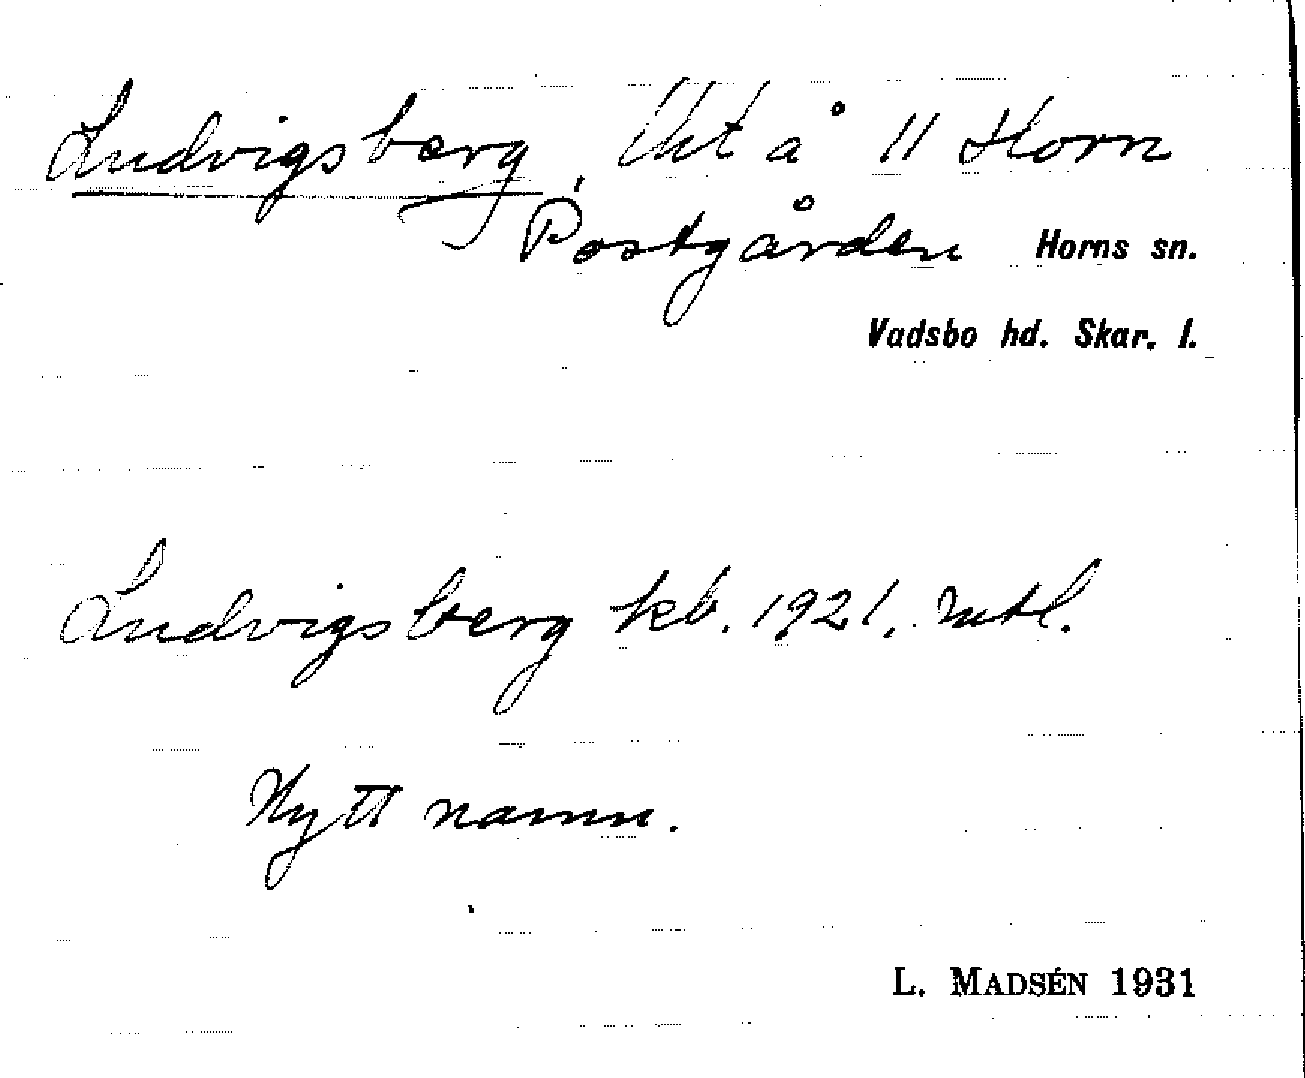 Ludvigsberg, Uht å 11 Horn
Postgården Horns sn.
Vadsbo hd. Skar. l.
Ludvigsberg kb. 1921, mtl.
Nytt namn.
L. MADSÉN 1931